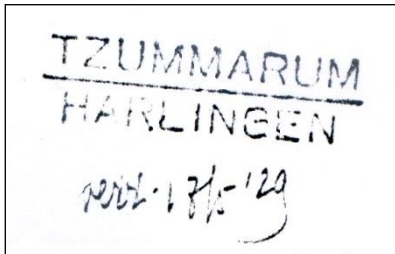 TZUMMARUM
HARLINGEN
verz. 17/5-'29